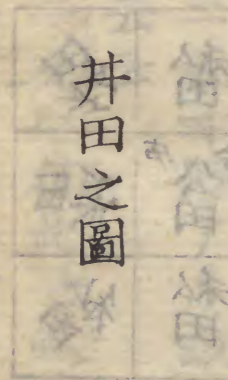 井田之圖